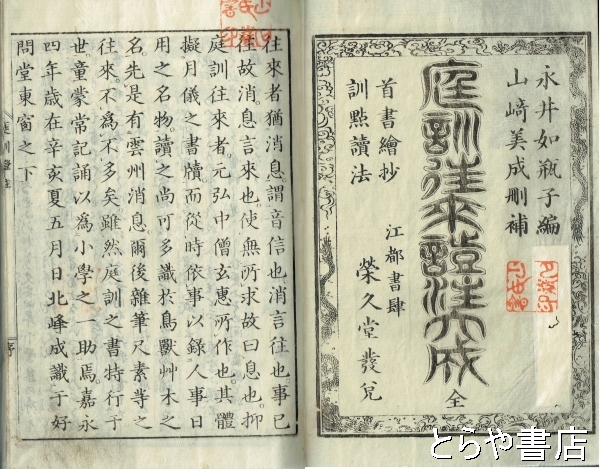 永井如瓶子編
山﨑美成刪補
庭訓徃來證註大成
全
首書繪抄
訓㸃讀法
江都書肆
榮久堂發兌
徃來者猶消息謂音信也消言徃也事已
徃故消息言來也使無所求故曰息也抑
庭訓徃來者元弘中僧玄惠所作也其體
擬月儀之書牘而從時依事以錄人事日
用之名物讀之尚可多識於鳥獸艸木之
名先是有雲州消息爾後雜筆尺素等之
徃來不為不多矣雖然庭訓之書特行于
世童蒙常記誦以為小學之一助焉嘉永
四年歲在辛亥夏五月日北峰成識于好
問堂東窗之下
序
とらや書店